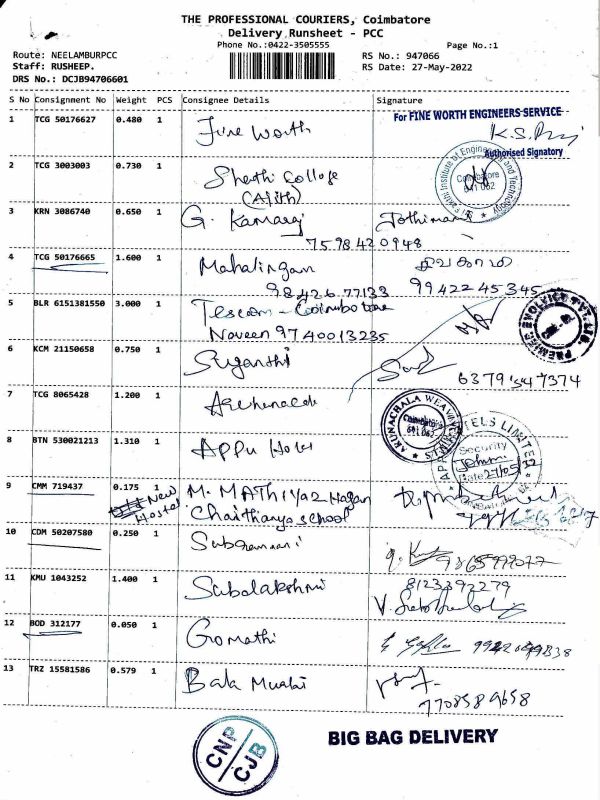 THE PROFESSIONAL COURIERS, Coimbatore
Delivery Runsheet - PCC
Phone No.:0422-3505555
Page No.:1
Route: NEELAMBURPCC
RS No.: 947066
Staff: RUSHEEP.
RS Date: 27-May-2022
DRS No.: DCJB94706601
S No Consignment No Weight PCS Consignee Details Signature
1 TCG 50176627 0.480 1 Fine Worth For FINE WORTH ENGINEERS SERVICE
Authorised Signatory
2 TCG 3003003 0.730 1 College
(Ajith) Institute of Engineering and Technology Coimbatore 641 062
3 KRN 3086740 0.650 1 G. Kamaraj Jothimani
7598420948
4 TCG 50176665 1.600 1 Mahalingam
98426 77133 99422 45345
5 BLR 6151381550 3.000 1 Tescom - Coimbatore
Naveen 9740013235 PREMIER EVOLVICS PVT. LTD.
6 KCM 21150658 0.750 1 Suganthi
6379 347374
7 TCG 8065428 1.200 1 ARUNACHALA Coimbatore 641 062
8 BTN 530021213 1.310 1 Appu Hotel HOTELS LIMITED Security
Date 27/05/22
9 CMM 719437 0.175 1 M. MATHIYAZHAGAN
New Hostel Chaithanya school
10 CDM 50207580 0.250 1 Subramani
11 KMU 1043252 1.400 1 Subalakshmi 8123392279
12 BOD 312177 0.050 1 Gomathi
13 TRZ 15581586 0.579 1 Bala Murali
7708589658
CNP CJB
BIG BAG DELIVERY